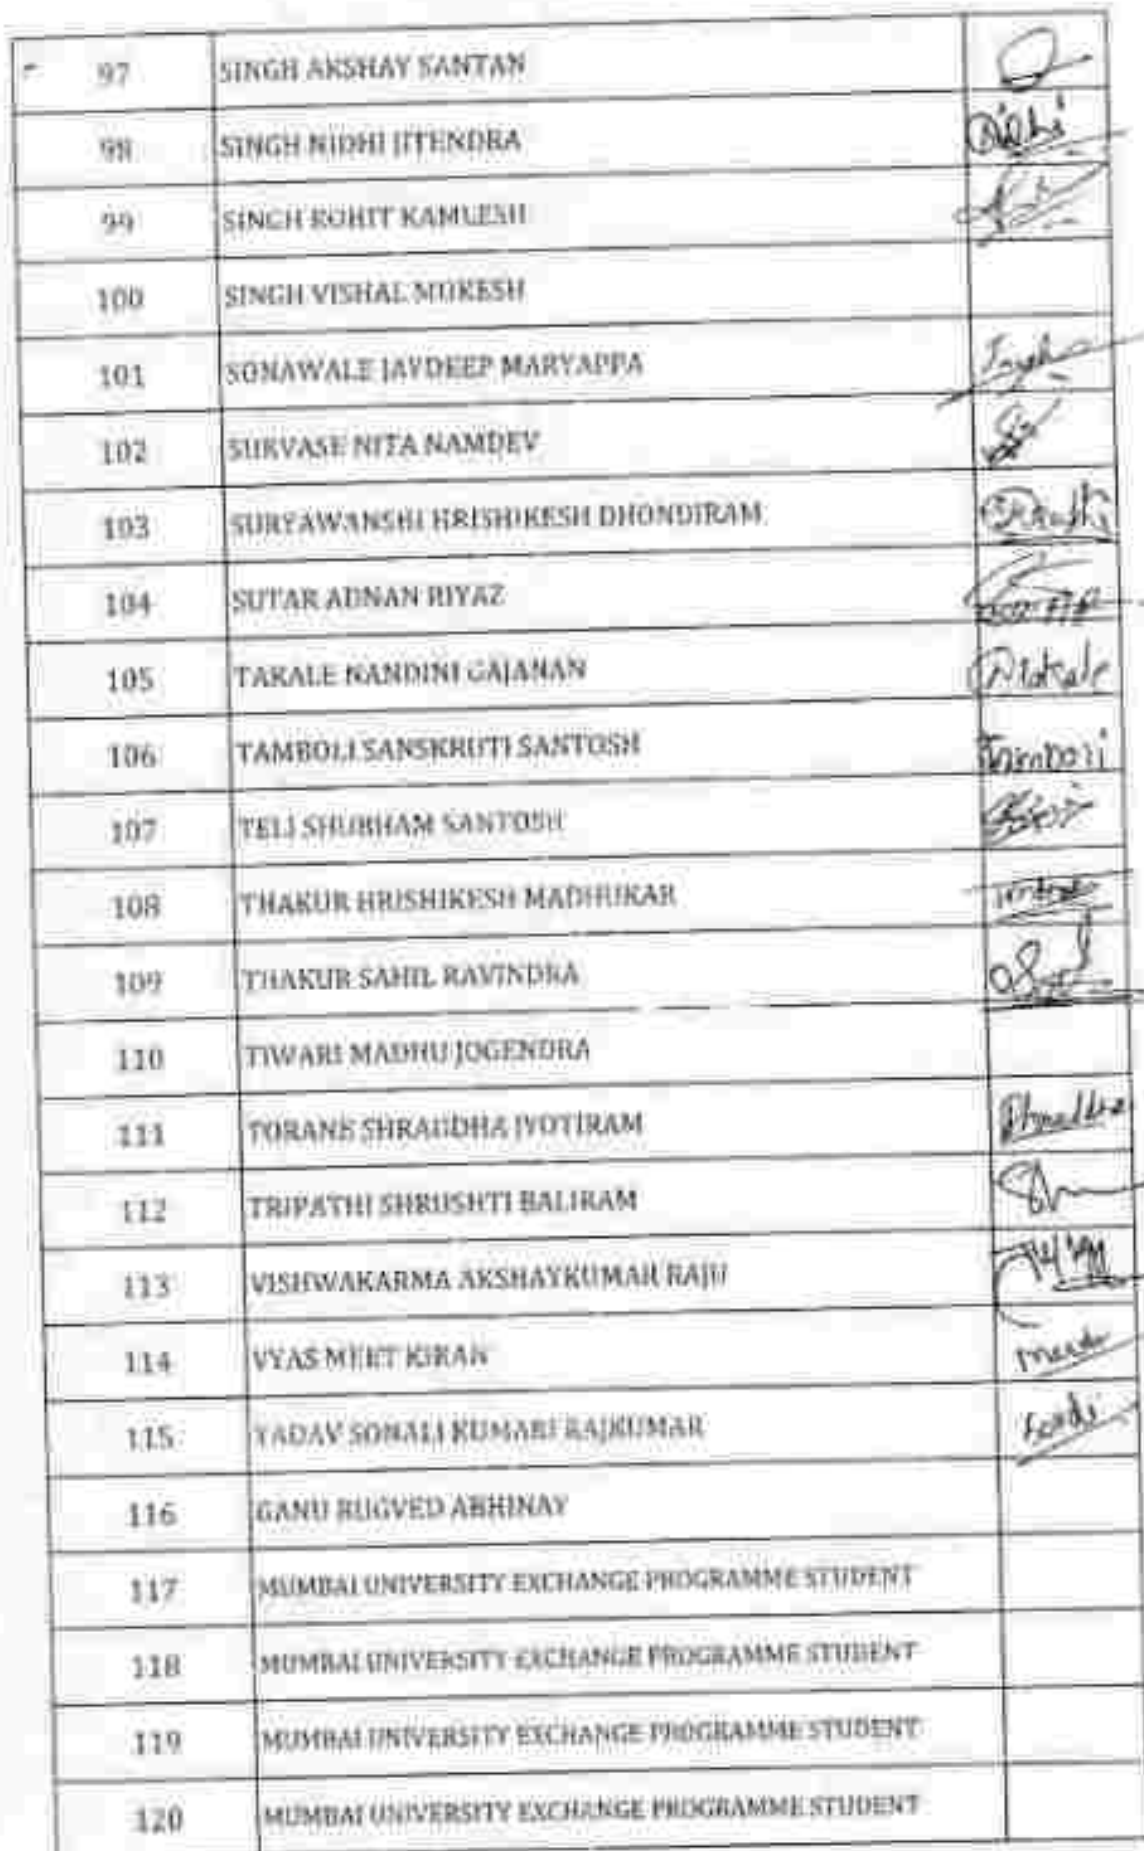 97 SINGH AKSHAY SANTAN
98 SINGH NIDHI JITENDRA Nidhi
99 SINGH ROHIT KAMLESH
100 SINGH VISHAL MUKESH
101 SONAWALE JAYDEEP MARYAPPA
102 SURVASE NITA NAMDEV
103 SURYAWANSHI HRISHIKESH DHONDIRAM
104 SUTAR ADNAN RIYAZ
105 TAKALE NANDINI GAJANAN Ntakale
106 TAMBOLI SANSKRUTI SANTOSH
107 TELI SHUBHAM SANTOSH
108 THAKUR HRISHIKESH MADHUKAR
109 THAKUR SAHIL RAVINDRA
110 TIWARI MADHU JOGENDRA
111 TORANE SHRADDHA JYOTIRAM
112 TRIPATHI SHRUSHTI BALIRAM
113 VISHWAKARMA AKSHAYKUMAR RAJU
114 VYAS MEET KIRAN
115 YADAV SONALI KUMARI RAJKUMAR
116 GANU RUGVED ABHINAY
117 MUMBAI UNIVERSITY EXCHANGE PROGRAMME STUDENT
118 MUMBAI UNIVERSITY EXCHANGE PROGRAMME STUDENT
119 MUMBAI UNIVERSITY EXCHANGE PROGRAMME STUDENT
120 MUMBAI UNIVERSITY EXCHANGE PROGRAMME STUDENT